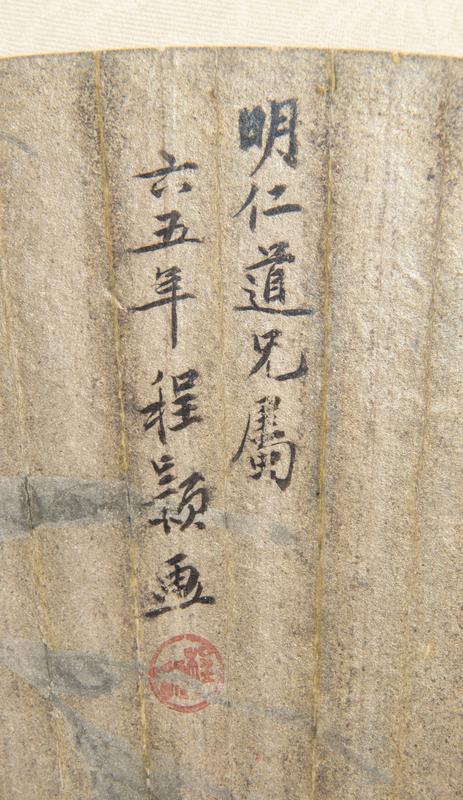 明仁道兄屬
六五年程颖画